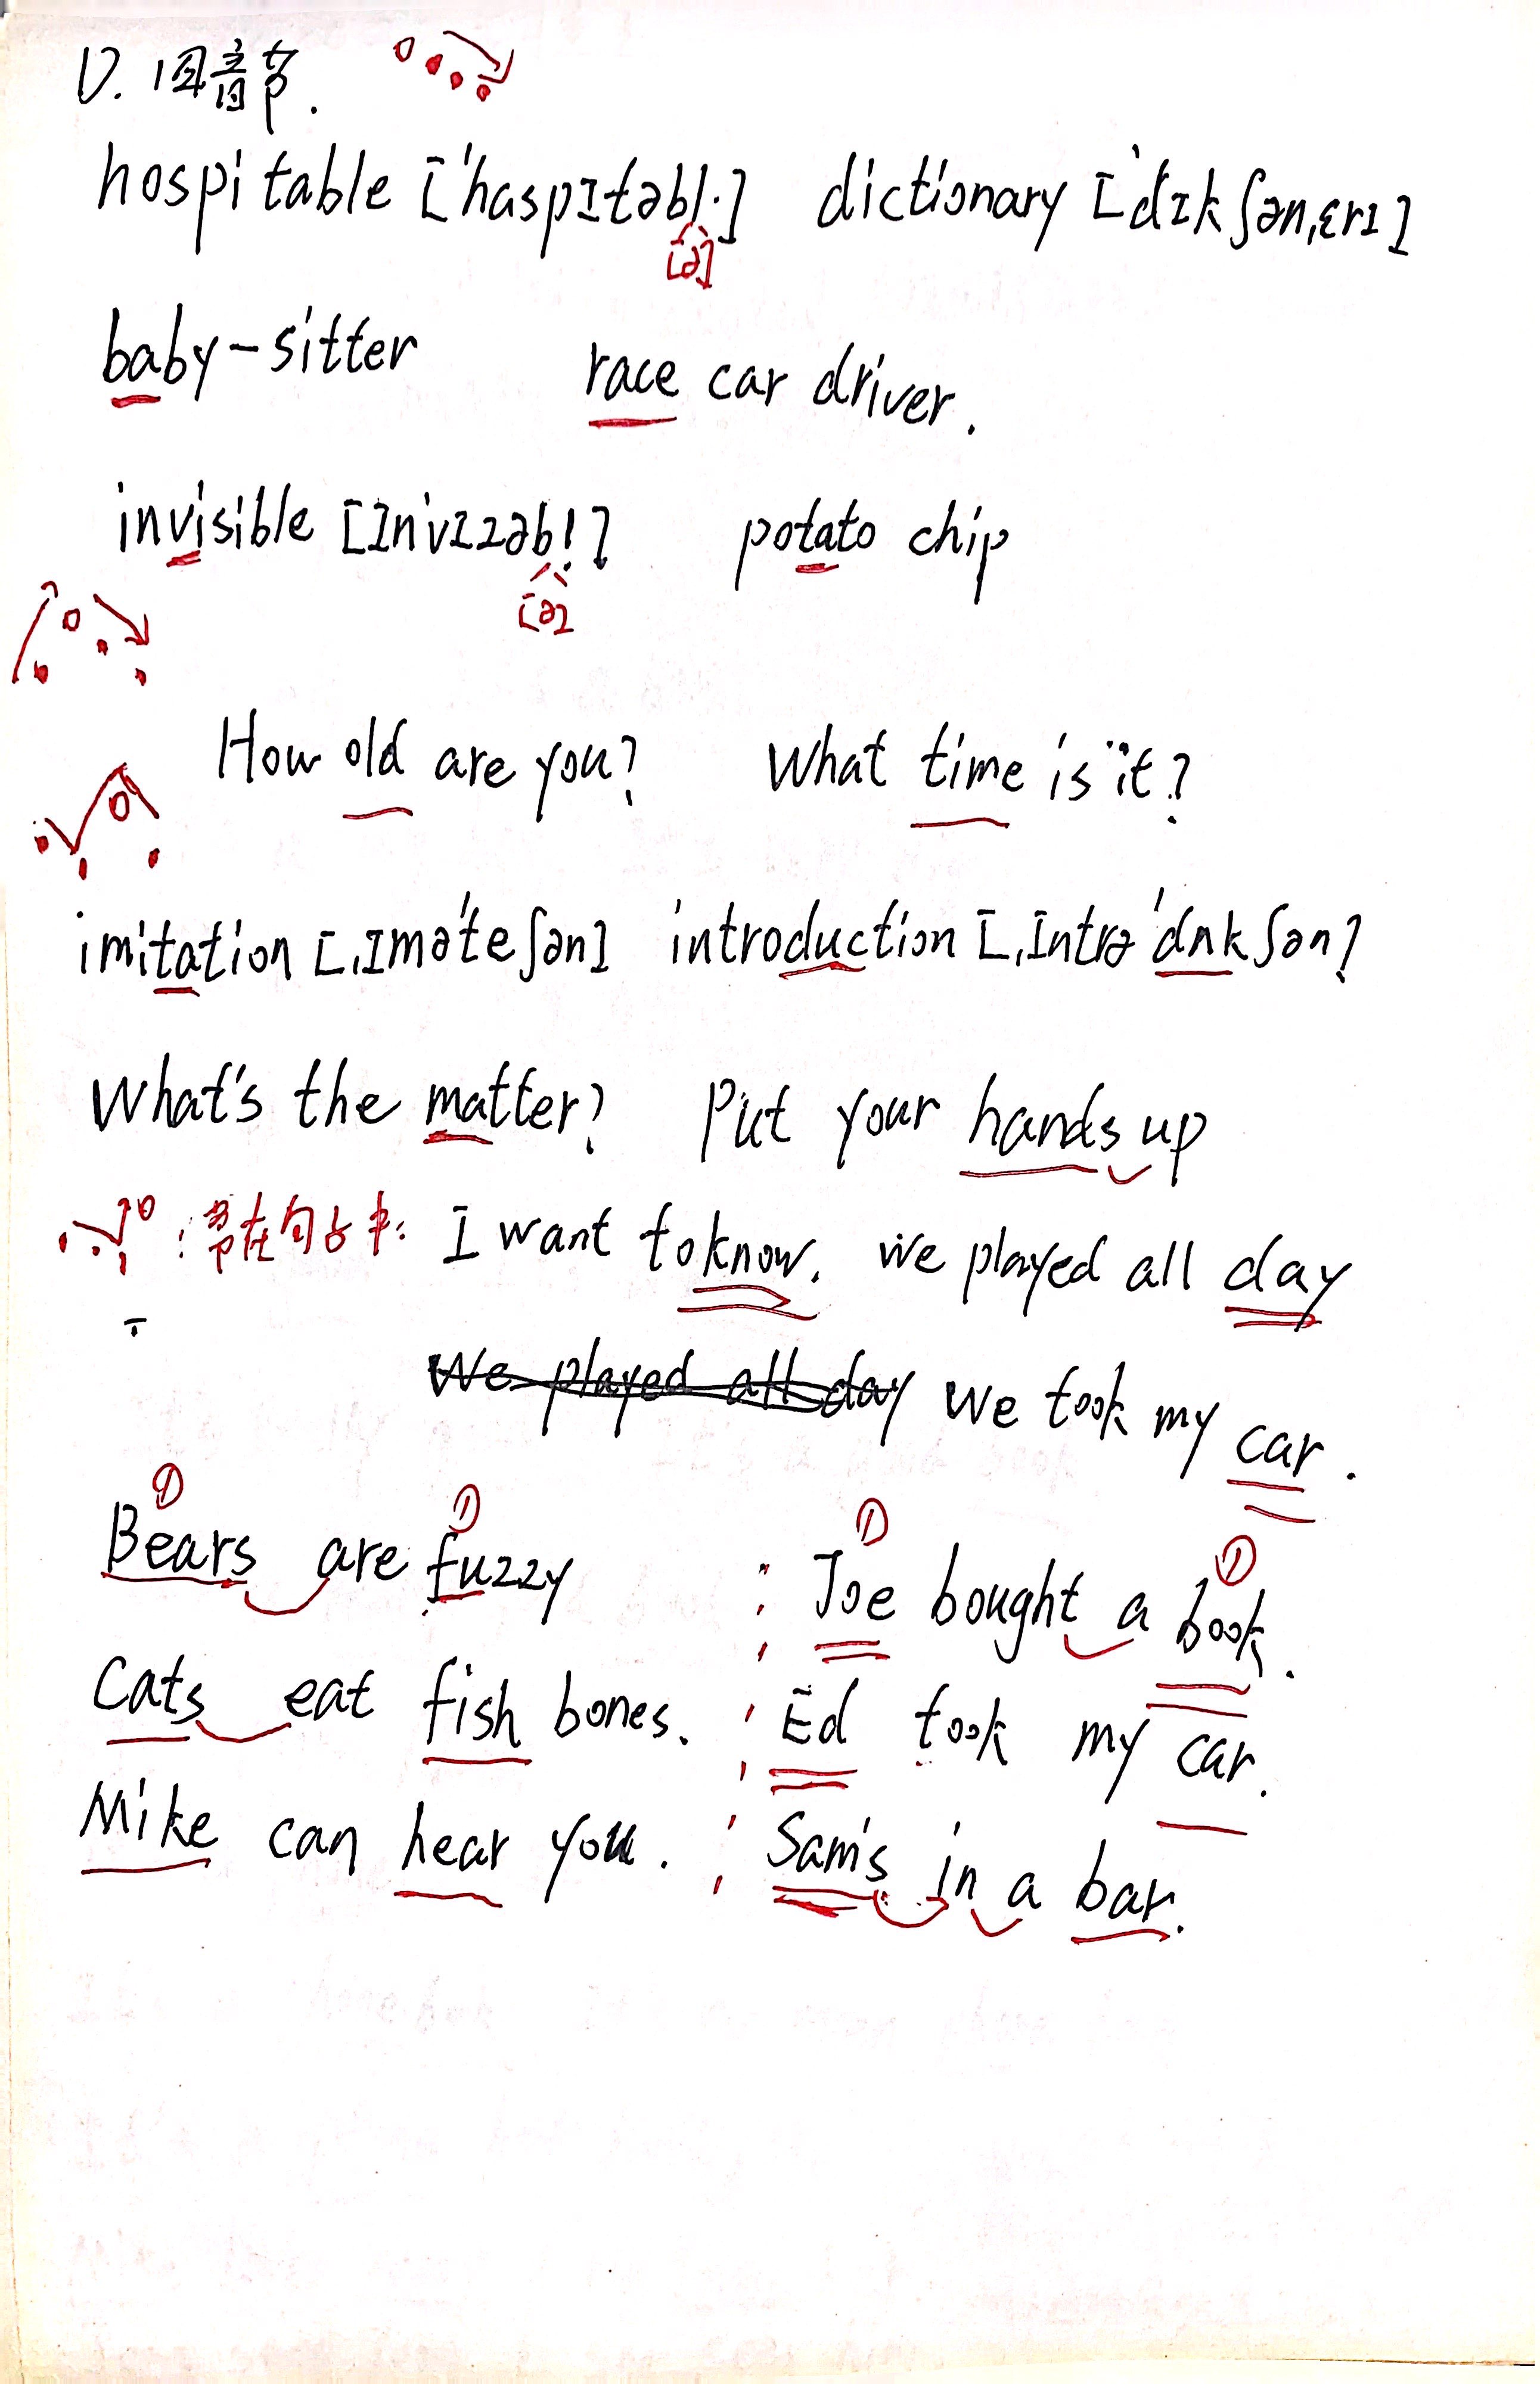 V. 四音节.
hospitable ['haspɪtəbl̩] dictionary ['dɪkʃən,ɛrɪ]
[ə]
baby-sitter race car driver.
invisible [ɪn'vɪzəbl̩] potato chip
[ə]
How old are you? What time is it?
imitation [,ɪmə'teʃən] introduction [,ɪntrə'dʌkʃən]
What's the matter? Put your hands up
: 常在句子中: I want to know. We played all day
We played all day We took my car.
① ① ① ①
Bears are fuzzy Joe bought a book.
Cats eat fish bones. Ed took my car.
Mike can hear you. Sam's in a bar.